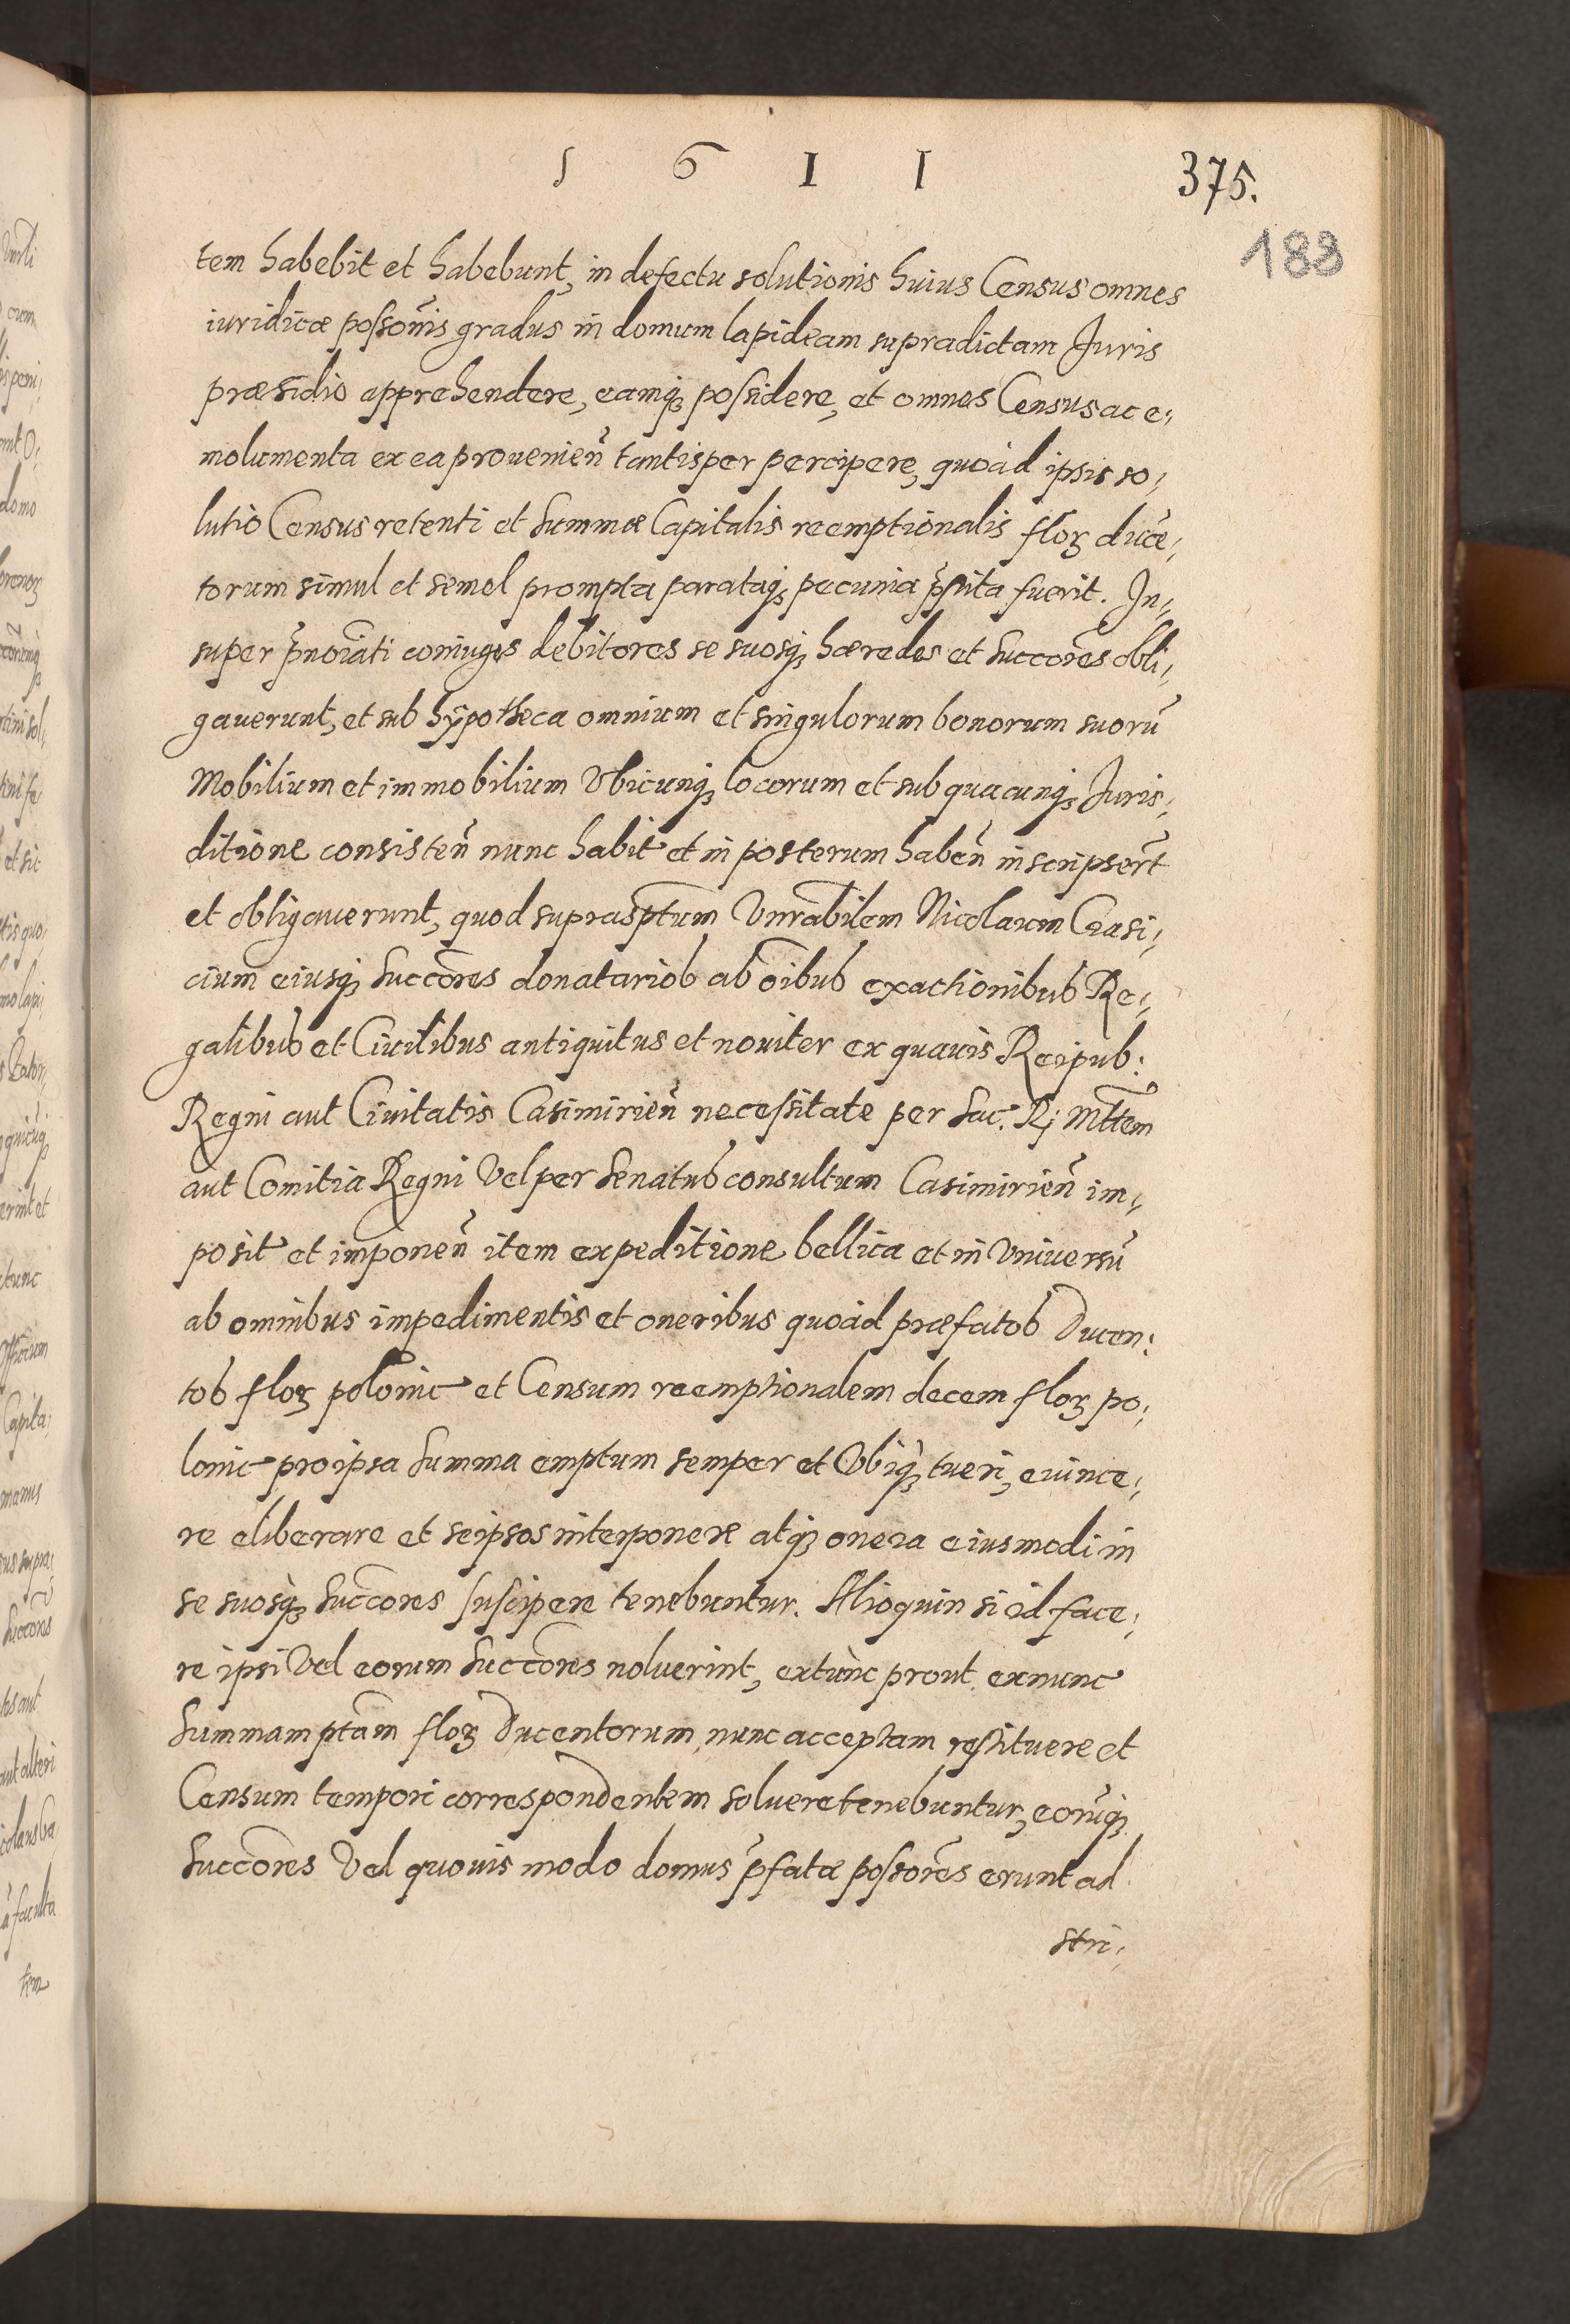 1 6 I I 375.
188
tem habebit et habebunt, in defectu solutionis huius Census omnes
iuridicæ possonĩs gradus in domum lapideam supradictam Juris
præsidio apprehendere, eamqꝫ possidere, et omnes Census ac e;
molumenta ex ea provenieñ tantisper percipere, quoad ipsis so;
lutio Census retenti et Summæ Capitalis reemptionalis floꝝ ducẽ;
torum simul et semel prompta parataqꝫ pecunia p̃stita fuerit. In;
super p̃noĩati coniuges debitores se suosqꝫ hæredes et Succoñes obli;
gaverunt, et sub hÿpotheca omnium et singulorum bonorum suorũ
Mobilium et immobilium Ubicunqꝫ locorum et sub quacunqꝫ Juris;
ditione consisteñ nunc habit et in posterum habeñ inscripserũt
et obligaverunt, quod suprasp̃tum Vnrãbilem Nicolaum Crasi;
cium eiusqꝫ Succõres donatarios ab oĩbus exactionibus Re;
galibus et Civilibus antiquitus et noviter ex quavis Reipub:
Regni aut Civitatis Casimirieñ necessitate per Sac. Rj Mttem
aut Comitia Regni Vel per Senatus consultum Casimirieñ im;
posit et imponeñ item expeditione bellica et in Universũ
ab omnibus impedimentis et oneribus quoad præfatos Ducen:
tos floꝝ polonic et Censum reemptionalem decem floꝝ po;
lonic pro ipsa Summa emptum semper et Ubiqꝫ tueri, evince;
re eliberare et seipsos interponere atqꝫ onera eiusmodi in
se suosqꝫ Succõres suscipere tenebuntur. Alioquin si id face;
re ipsi Vel eorum Succõres noluerint, extunc prout exnunc
Summam ptãm floꝝ Ducentorum nunc acceptam restituere et
Censum tempori correspondentem solvere tenebuntur, eorũqꝫ
Succõres Vel quovis modo domus p̃fatæ possorẽs erunt ad
stri;